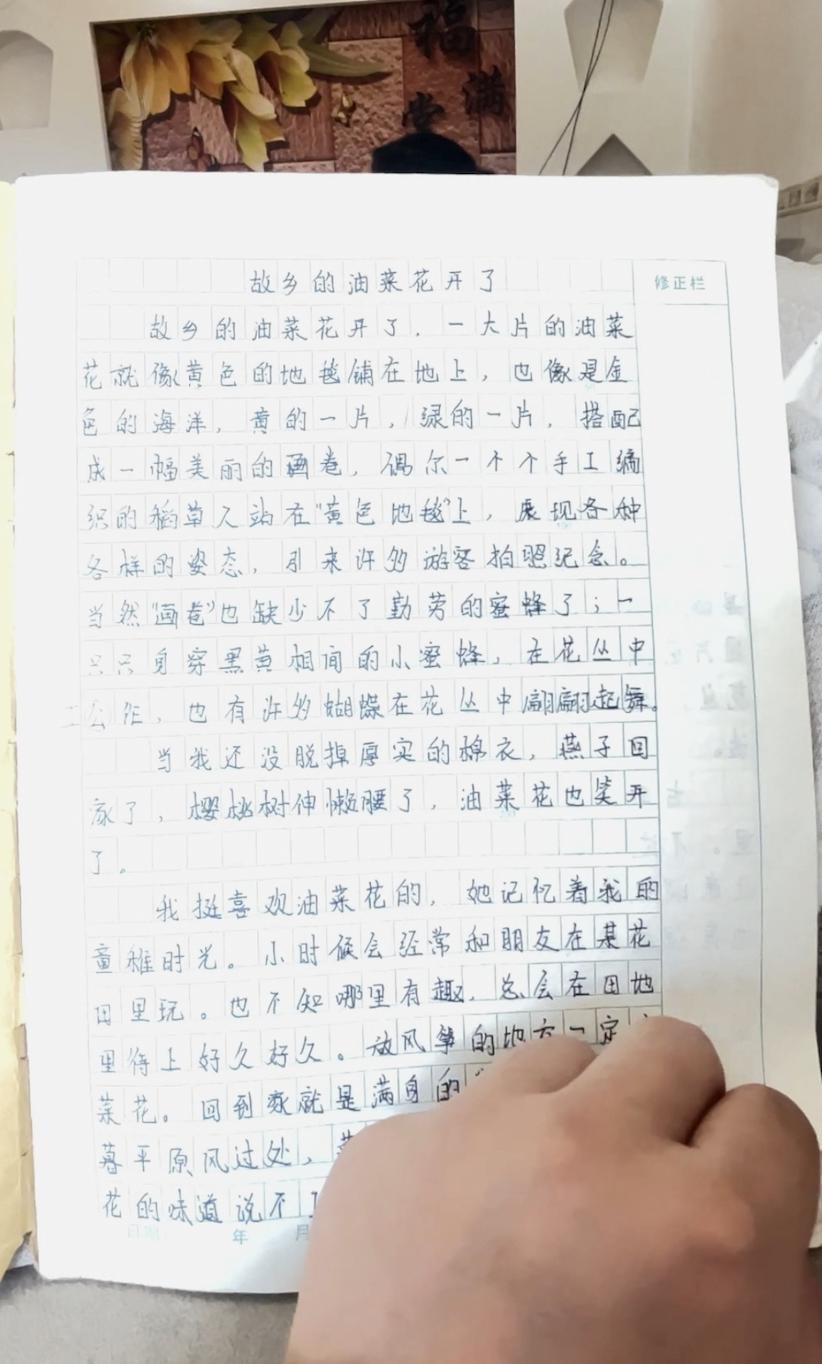 福
满
堂
故乡的油菜花开了
修正栏
故乡的油菜花开了，一大片的油菜
花就像黄色的地毯铺在地上，也像是金
色的海洋，黄的一片，绿的一片，搭配
成一幅美丽的画卷，偶尔一个个手工编
织的稻草人站在“黄色地毯”上，展现各种
各样的姿态，引来许多游客拍照纪念。
当然“画卷”也缺少不了勤劳的蜜蜂了；一
只只身穿黑黄相间的小蜜蜂，在花丛中
工作，也有许多蝴蝶在花丛中翩翩起舞。
当我还没脱掉厚实的棉衣，燕子回
家了，樱桃树伸懒腰了，油菜花也笑开
了。
我挺喜欢油菜花的，她记忆着我的
童稚时光。小时候会经常和朋友在菜花
田里玩。也不知哪里有趣，总会在田地
里待上好久好久。放风筝的地方一定
菜花。回到家就是满身的
暮平原风过处，
花的味道说不
年 月